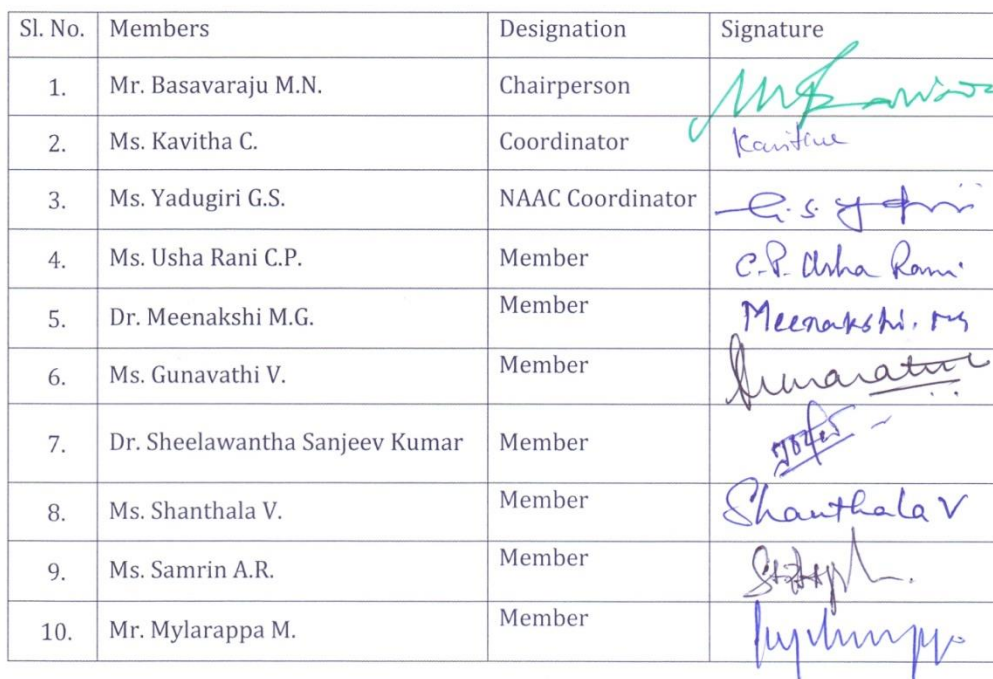 Sl. No. Members Designation Signature
1. Mr. Basavaraju M.N. Chairperson
2. Ms. Kavitha C. Coordinator Kavitha
3. Ms. Yadugiri G.S. NAAC Coordinator G.S.
4. Ms. Usha Rani C.P. Member C.P. Usha Rani.
5. Dr. Meenakshi M.G. Member Meenakshi. MG
6. Ms. Gunavathi V. Member
7. Dr. Sheelawantha Sanjeev Kumar Member
8. Ms. Shanthala V. Member Shanthala V
9. Ms. Samrin A.R. Member
10. Mr. Mylarappa M. Member